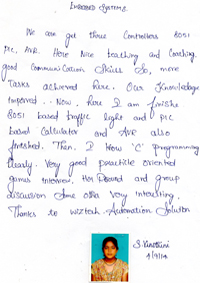 EMBEDDED SYSTEMS
We are get three Controllers 8051
PIC, AVR. Here Nice teaching and Coaching
good Communication Skills So, more
Tasks achieved here. Our Knowledge
Improved.. Now, here I am finishe
8051 based traffic light and PIC
based Calculator and AVR also
finished. Then, I know 'C' programming
clearly. Very good practice oriented
games Interview, Hr Round and group
discussion Some offer very interesting.
Thanks to wiztech Automation Solution
S.Vinothini
4/9/14